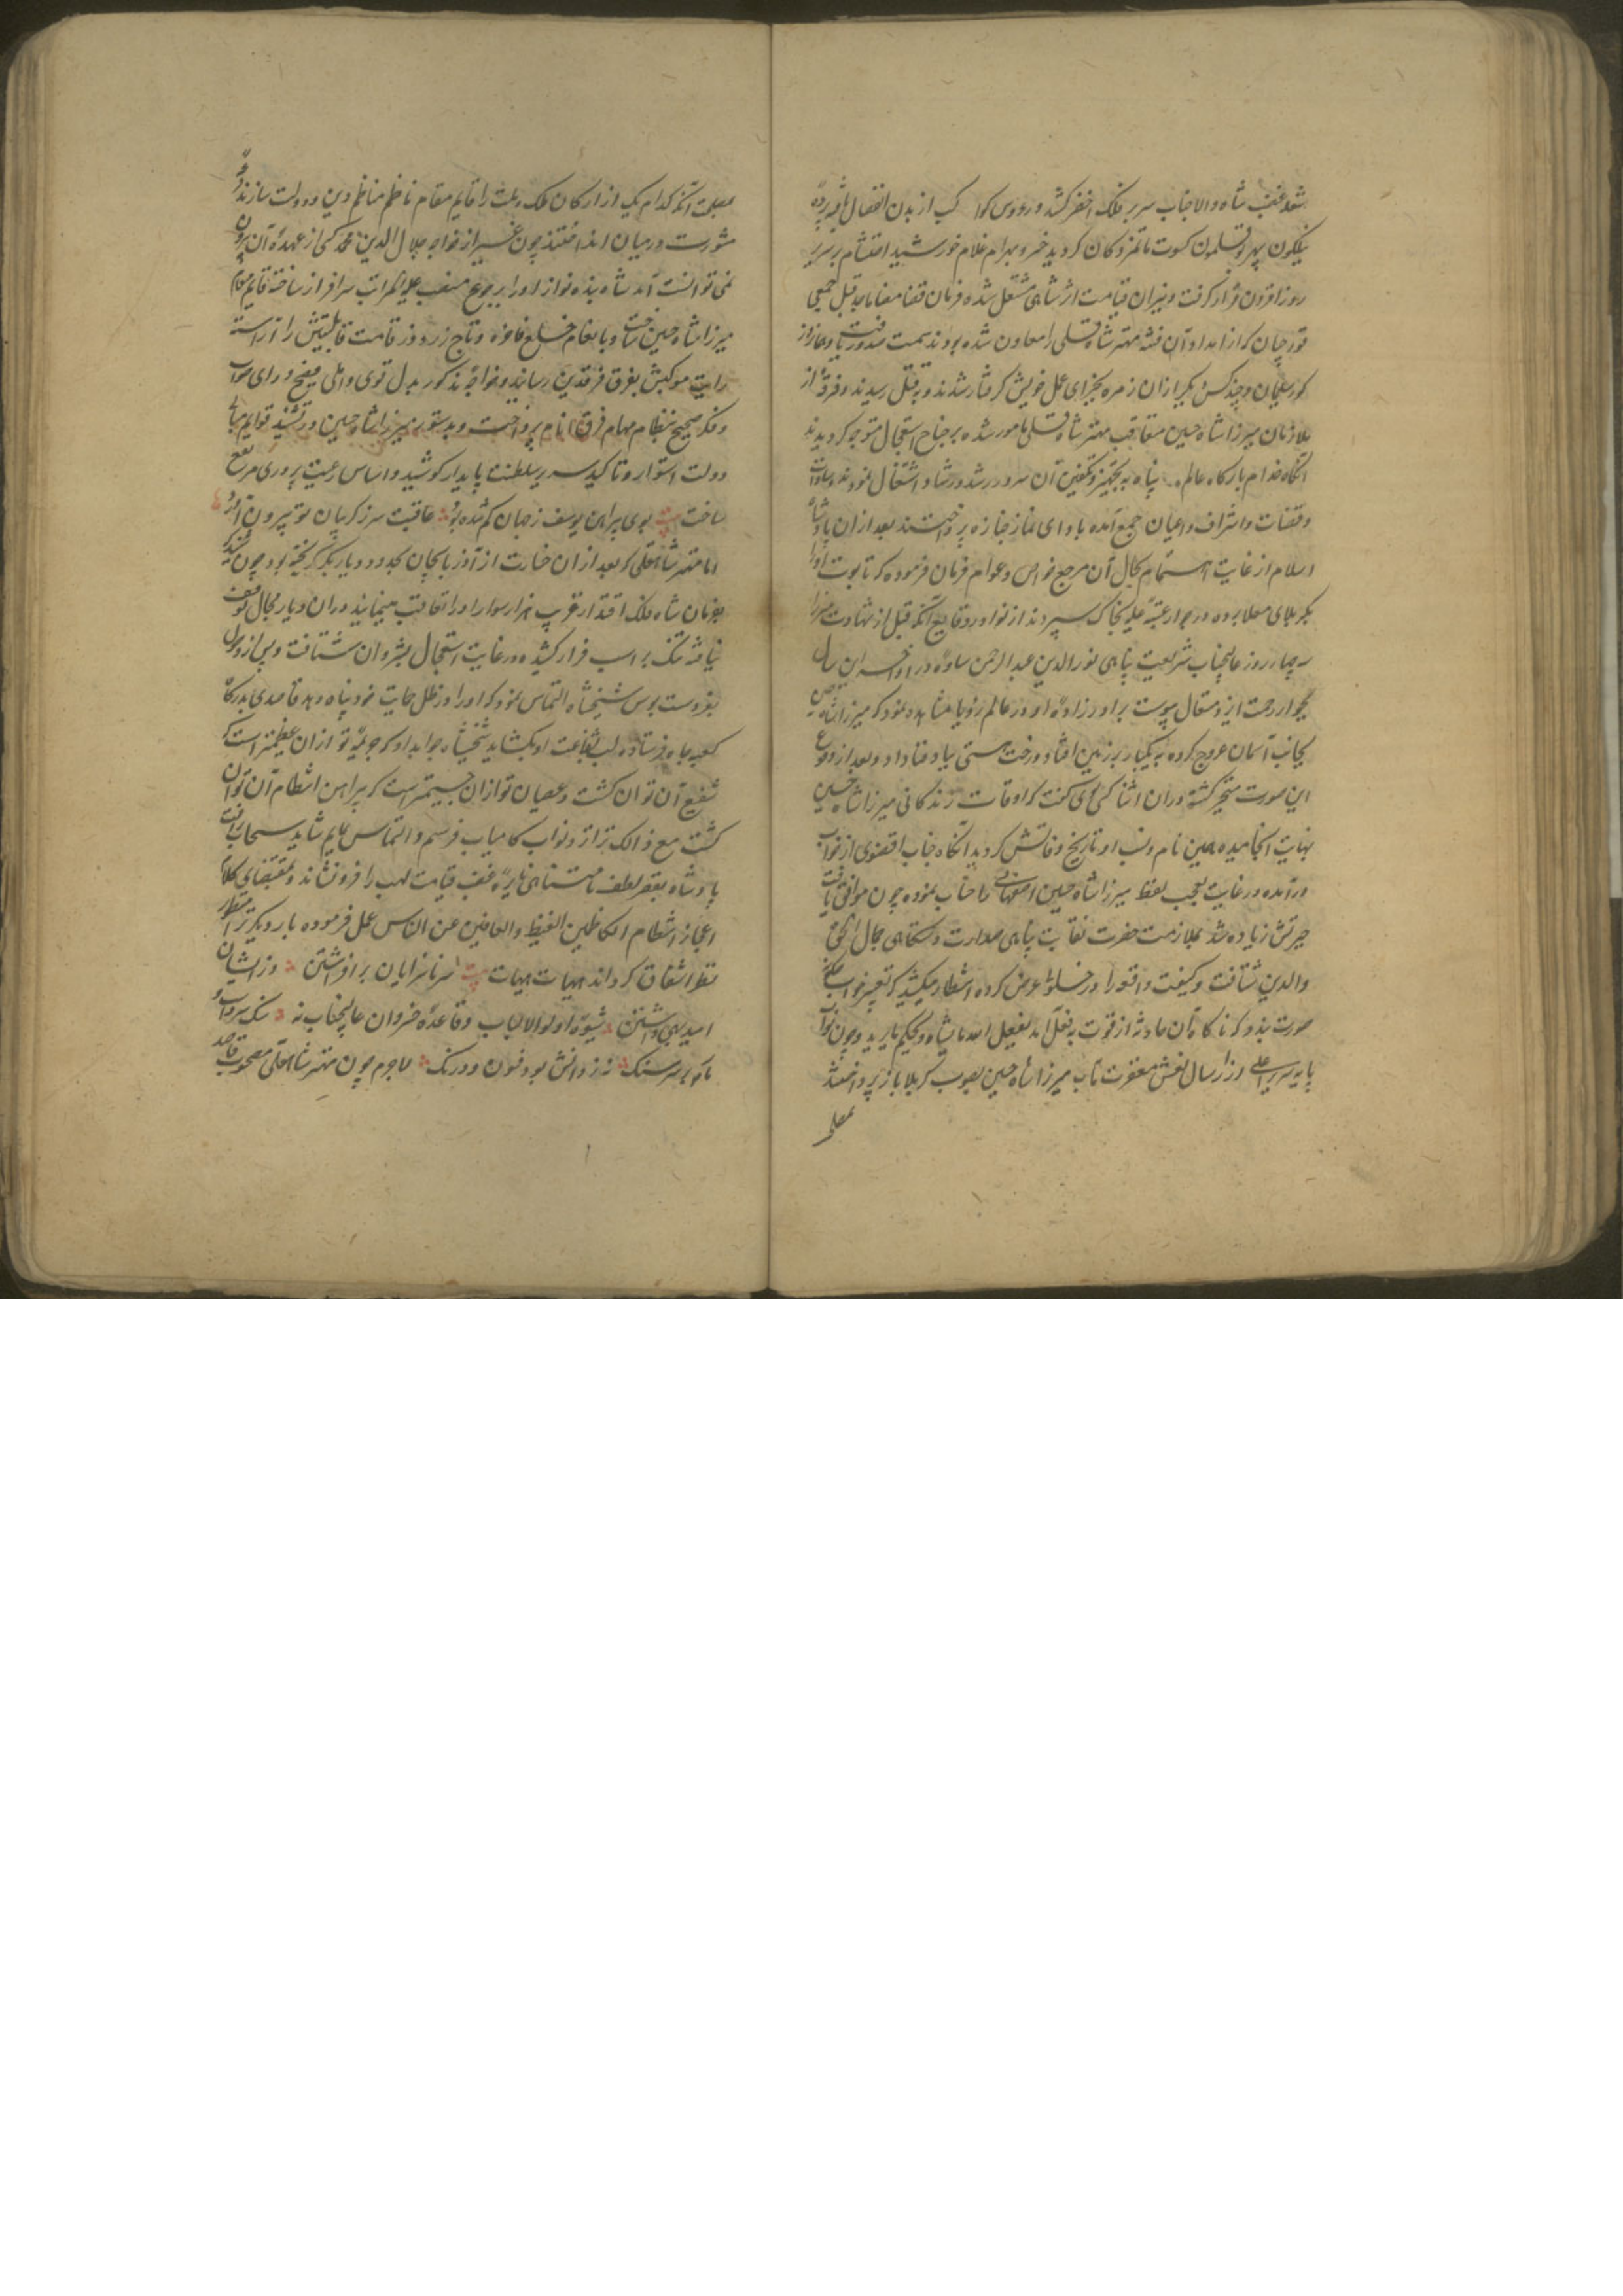 شعله غضب شاه والاجناب سر بر فلک اخضر کشید و رووس کواکب از بدن انفصال یافته پرده
نیلگون سپهر بوقلمون کسوت ماتمزدگان گردید خسرو بهرام غلام خورشید احتشام بر سریر
روزافزون قرار گرفت و نیران قیامت اثر شاهی مشتعل شده فرمان قضا مضا بقتل جمعی
قورچیان که از امداد آن فتنه مهتر شاه قلی را معاون شده بودند سمت صدور یافت و همان روز
کور سلیمان و چند کس دیگر از آن زمره بجزای عمل خویش گرفتار شدند و به قتل رسیدند و فرقه از
ملازمان میرزا شاه حسین متعاقب مهتر شاه قلی مامور شده بر جناح استعجال متوجه گردیدند
آنگاه خدام بارگاه عالم پناه به تجهیز و تکفین آن سرور اشتغال نمودند و سادات
و قضات و اشراف و اعیان جمع آمده بادای نماز جنازه پرداختند بعد از آن پادشاه
اسلام از غایت اهتمام بحال آن مرجع خواص و عوام فرمان فرموده که تابوت او را
بکربلای معلا برده در جوار عتبه علیه بخاک سپردند از نوادر وقایع آنکه قبل از شهادت میرزا
به چهار روز عالیجناب شریعت پناهی نورالدین عبدالرحمن ساوه در اواخر این سال
بجوار رحمت ایزد متعال پیوست برادرزاده او در عالم رؤیا مشاهده نمود که میرزا شاه حسین
بجانب آسمان عروج کرده به یکبار بر زمین افتاد و رخت هستی بباد فنا داد و بعد از وقوع
این صورت متحیر گشته در آن اثنا کسی می گفت که اوقات زندگانی میرزا شاه حسین
نهایت انجامیده همین نام و نسب او تاریخ وفاتش گردید آنگاه جناب اقضوی از خواب
درآمده در غایت تعجب لفظ میرزا شاه حسین اصفهانی را حساب نموده چون موافق یافت
حیرتش زیاده شد بملازمت حضرت نقابت پناهی صدارت دستگاهی جمال
والدین شتافت و کیفیت واقعه را در خلوت عرض کرده انتظار میکشید که تعبیر خواب
صورت بندد که ناگاه آن حادثه از قوت به فعل آمد یفعل الله مایشاء و یحکم مایرید و چون نواب
پایه سریر اعلی از ارسال نعش مغفرت مآب میرزا شاه حسین بصوب کربلا باز پرداختند
بمصلحت آنکه کدام یک از ارکان ملک و ملت را قایم مقام ناظم مناظم دین و دولت سازند
مشورت در میان انداختند چون غیر از خواجه جلال الدین محمد کسی از عهده آن بیرون
نمی توانست آمد شاه بنده نواز او را برجوع منصب عظیم المراتب سرافراز ساخته قایم مقام
میرزا شاه حسین ساخت و بانعام خلع فاخره و تاج زردوز قامت قابلیتش را آراسته
رایت موکبش بفرق فرقدین رسانید و خواجه مذکور بدل قوی و املی فسیح و رای صواب
و فکر صحیح بنظام مهام فرق انام پرداخت و بدستور میرزا شاه حسین در تشیید قوایم مبانی
دولت استوار و تاکید سریر سلطنت پایدار کوشید و اساس رعیت پروری مرتفع
ساخت بیت بوی پیراهن یوسف ز جهان گم شده بود عاقبت سر ز گریبان تو بیرون آورد
اما مهتر شاه قلی که بعد از آن خسارت از آذربایجان بحدود دیار بکر گریخته بود چون شنید که
بفرمان شاه فلک اقتدار قریب هزار سوار او را تعاقب مینمایند در آن دیار مجال توقف
نیافته تنگ بر اسب فرار کشیده در غایت استعجال بشیروان شتافت و پس از وصول
بعز دستبوس شیخشاه التماس نمود که او را در ظل حمایت خود پناه دهد و قاصدی بدرگاه
کعبه جاه فرستاده لب بشفاعت او بگشاید شیخشاه جواب داد که جریمه تو از آن عظیمتر است که
شفیع آن توان گشت و عصیان تو از آن جسیمتر است که پیرامن انتظام آن توان
گشت مع ذالک ترا نزد نواب کامیاب فرستم و التماس نمایم شاید سحاب رافت
پادشاه بقطر لطف نامتناهی نایره غضب قیامت لهب را فرونشاند و بمقتضای کلام
اعجاز انتظام الکاظمین الغیظ والعافین عن الناس عمل فرموده بار دیگر ترا منظور
نظر اشفاق گرداند هیهات هیهات بیت سر ناسزایان برافراشتن و زایشان
امید بهی داشتن شیوه اولوالالباب و قاعده خسروان عالیجناب نه
لاجرم چون مهتر شاه قلی مصحوب قاصد